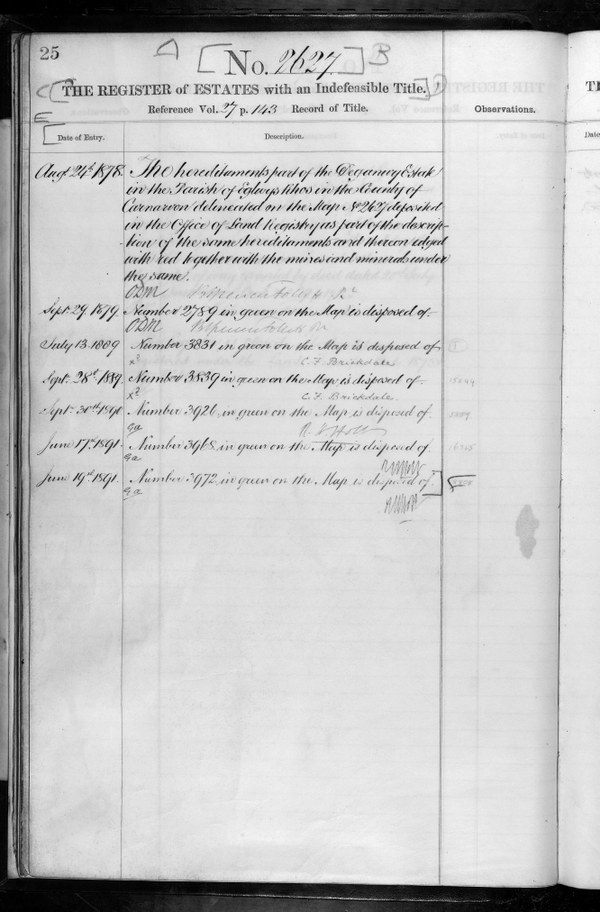 25
A [No. 2627.] B
C [THE REGISTER of ESTATES with an Indefeasible Title.]
Reference Vol. 27 p. 143 Record of Title.
Observations.
E
Date of Entry.
Description.
Augt. 24th 1878. The hereditaments part of the Deganwy Estate
in the Parish of Eglwys Rhos in the County of
Carnarvon delineated on the Map No 2627 deposited
in the Office of Land Registry as part of the descrip-
tion of the same hereditaments and thereon edged
with red together with the mines and minerals under
the same.
Sept. 29. 1879. Number 2789 in green on the Map is disposed of.
July 13. 1889 Number 3831 in green on the Map is disposed of
C. F. Brickdale
Sept. 28th 1889. Number 3839 in green on the Map is disposed of
C. F. Brickdale.
Sept. 30th 1890 Number 3926, in green on the Map is disposed of.
ga
June 17th 1891. Number 3968, in green on the Map is disposed of.
ga
June 19th 1891. Number 3972, in green on the Map is disposed of
ga